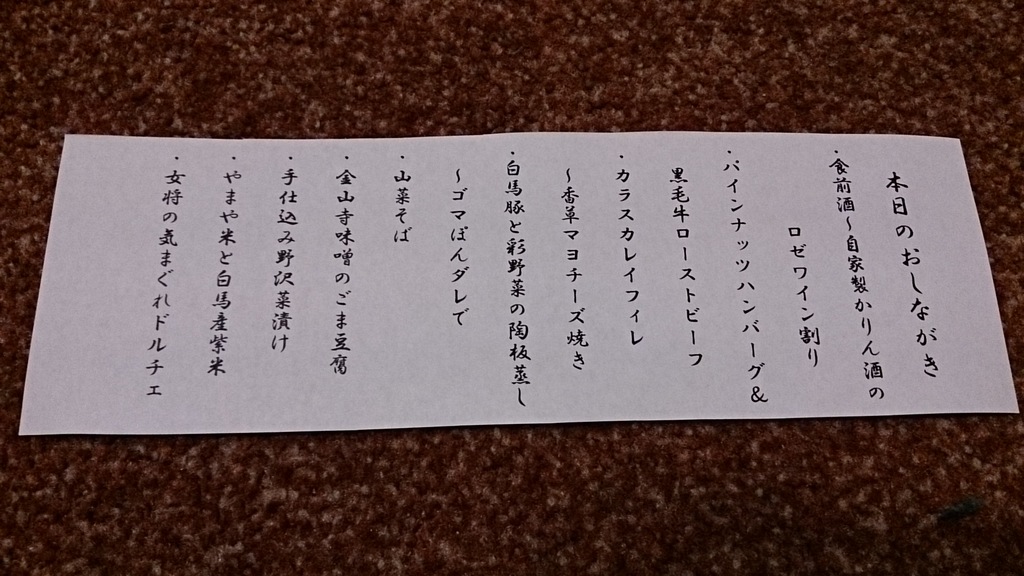 本日のおしながき
・食前酒～自家製かりん酒の
ロゼワイン割り
・パインナッツハンバーグ&
黒毛牛ローストビーフ
・カラスカレイフィレ
～香草マヨチーズ焼き
・白馬豚と彩野菜の陶板蒸し
～ゴマぽんダレで
・山菜そば
・金山寺味噌のごま豆腐
・手仕込み野沢菜漬け
・やまや米と白馬産紫米
・女将の気まぐれドルチェ